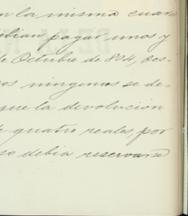 en la misma cuan
debian pagar unos y
de Octubre de 184, des-
os ningunos se de-
que la devolucion
quatro reales por
so debia reservarse